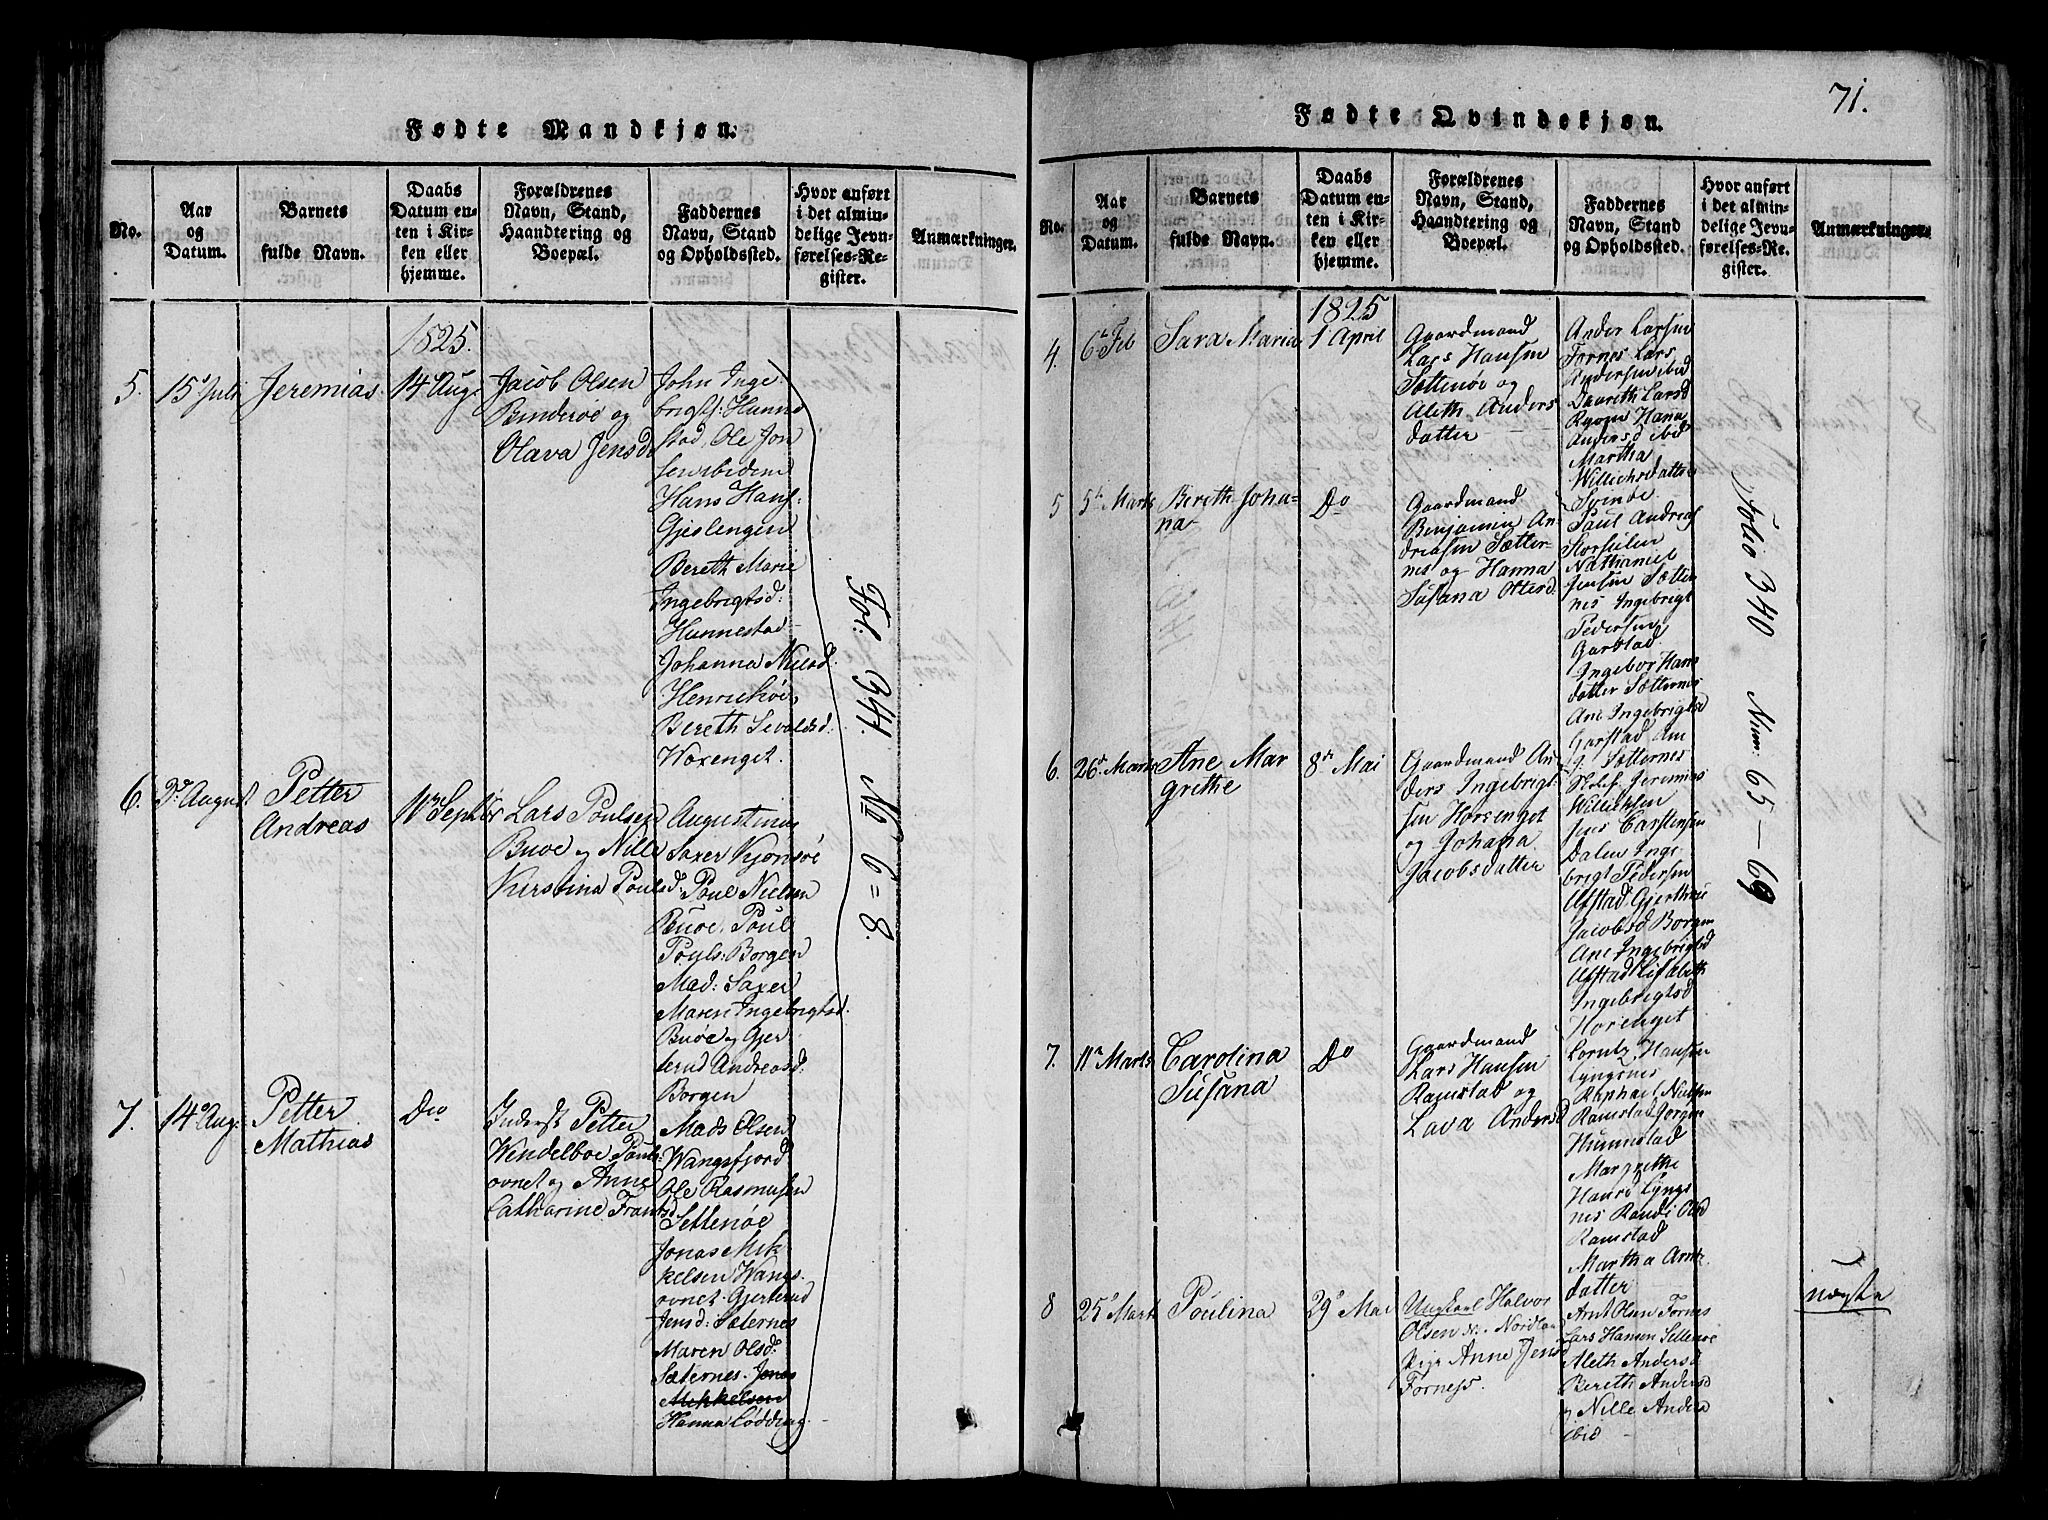 Fødte Mandkjøn.
No.
Aar og Datum.
Barnets fulde Navn.
Daabs Datum enten i Kirken eller hjemme.
Forældrenes Navn, Stand, Haandtering og Boepæl.
Faddernes Navn, Stand og Opholdssted.
Hvor anført i det almindelige Jevnførelses-Register.
Anmærkninger.
1825.
5.
15 Juli
Jeremias
14 Aug
Jacob Olsen
Benderøe og
Olava Jensd
John Inge
brigts: Hunne
stad, Ole Jon
sen ibidem
Hans Hans
Gjeslengen
Bereth Marie
Ingebrigtsd:
Hunnestad
Johanna Nielsd.
Henrichøe
Bereth Sevaldsd:
Woxenget.
6.
August
Petter
Andreas
11 Septbr
Lars Poulsen
Buøe og Nille
Kirstina Poulsd:
Augustinus
Saxer Kjønsøe
Poul Nielsen
Buøe, Poul
Pouls: Borgen
Mad: Saxer
Maren Ingebrigtsd.
Buøe og Gjer
terud Andreasd:
Borgen
7.
14 Aug:
Petter
Mathias
Do
Inderst Petter
Wendelboe Pouls
ovnet og Anne
Catharine Frantsd
Mads Olsen
Wangsfjord
Ole Rasmusen
Settenøe
Jonas Mik
kelsen Wangs
ovnet. Gjerterud
Jensd: Sæternes
Maren Olsd:
Sæternes. Jonas
Mikkelsen
Hanna Lødding
Fol. 341. No 6=8.
71.
Fødte Qvindekjøn.
No.
Aar og Datum.
Barnets fulde Navn.
Daabs Datum enten i Kirken eller hjemme.
Forældrenes Navn, Stand, Haandtering og Boepæl.
Faddernes Navn, Stand og Opholdssted.
Hvor anført i det almindelige Jevnførelses-Register.
Anmærkninger.
1825
4.
6 Feb
Sara Maria
1 April
Gaardmand
Lars Hansen
Settenøe og
Aleth Anders
datter
Ander Larsen
Fornes Lars
Andersen ibid
Daareth Larsd
Ryom Hana
Andersd ibid
Martha
Willichsdatter
Svinøe
5
5 Marts
Bereth Joha-
na
Do
Gaardmand
Benjamin An-
driasen Sætter-
nes og Hanna
Susana Ottersd
Paul Andreas
Storseilen
Nathaniel
Jensen Sætter
nes Ingebrigt
Pedersen
Garstad
Ingebor Hans
datter Sætternes
Ane Ingebrigtsd
Garstad
6.
26 Marts
Ane Mar
grethe
8 Mai
Gaardmand An
ders Ingebrigt-
sen Horsenget
og Johana
Jacobsdatter
Willichsen
Jens Carstensen
Dalen Inge-
brigt Pedersen
Afstad, Gjerthrue
Jacobsd Borgen
Ane Ingebrigtsd
Afstad Lisabeth
Ingebrigtsd
Horsenget
7.
11 Marts
Carolina
Susana
Do
Gaardmand
Lars Hansen
Ramstad og
Lava Andersd
Lorntz Hansen
Lyngsnes
Raphael Nielsen
Ramstad Jørgen
Hunnestad
Margrethe
Hansd Lyngs
nes Randi Olsd
Ramstad
Martha Arnt
datter
8
25 Marts
Poulina
29 Mai
Ungkarl Halvor
Olsen
Pige Anne Jensd
Forness.
Arnt Olsen Fornes
Lars Hansen Settenøe
Aleth Andersd
Bereth Andersd
og Nille Anders
ibid
Folio 340 Num: 65-69
næste